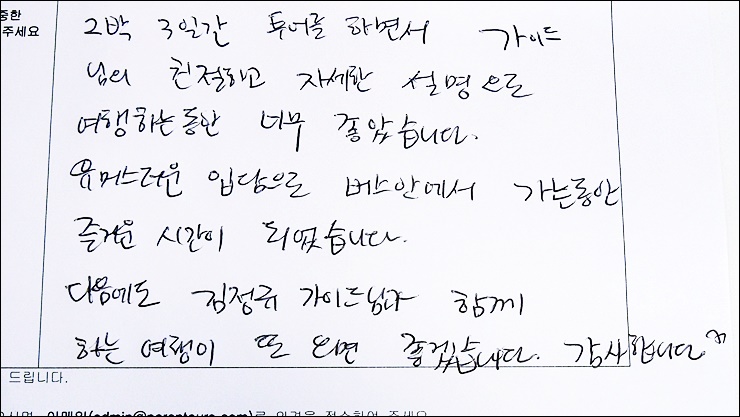 중한
주세요
2박 3일간 투어를 하면서 가이드
님의 친절하고 자세한 설명으로
여행하는동안 너무 좋았습니다.
유머스러운 입담으로 버스안에서 가는동안
즐거운 시간이 되었습니다.
다음에도 김정규 가이드님과 함께
하는 여행이 또 오면 좋겠습니다. 감사합니다^^
드립니다.